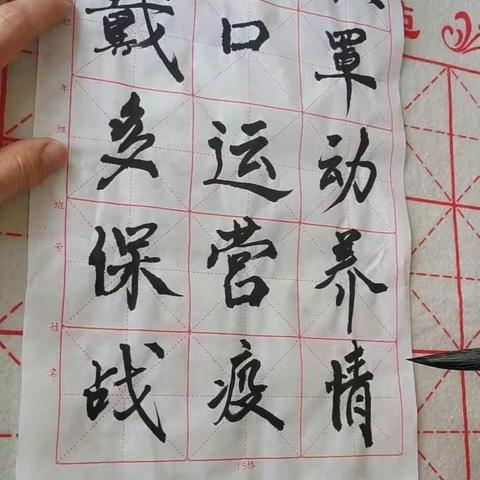 戴口罩
多运动
保营养
战疫情
年级
班号
姓名
15格